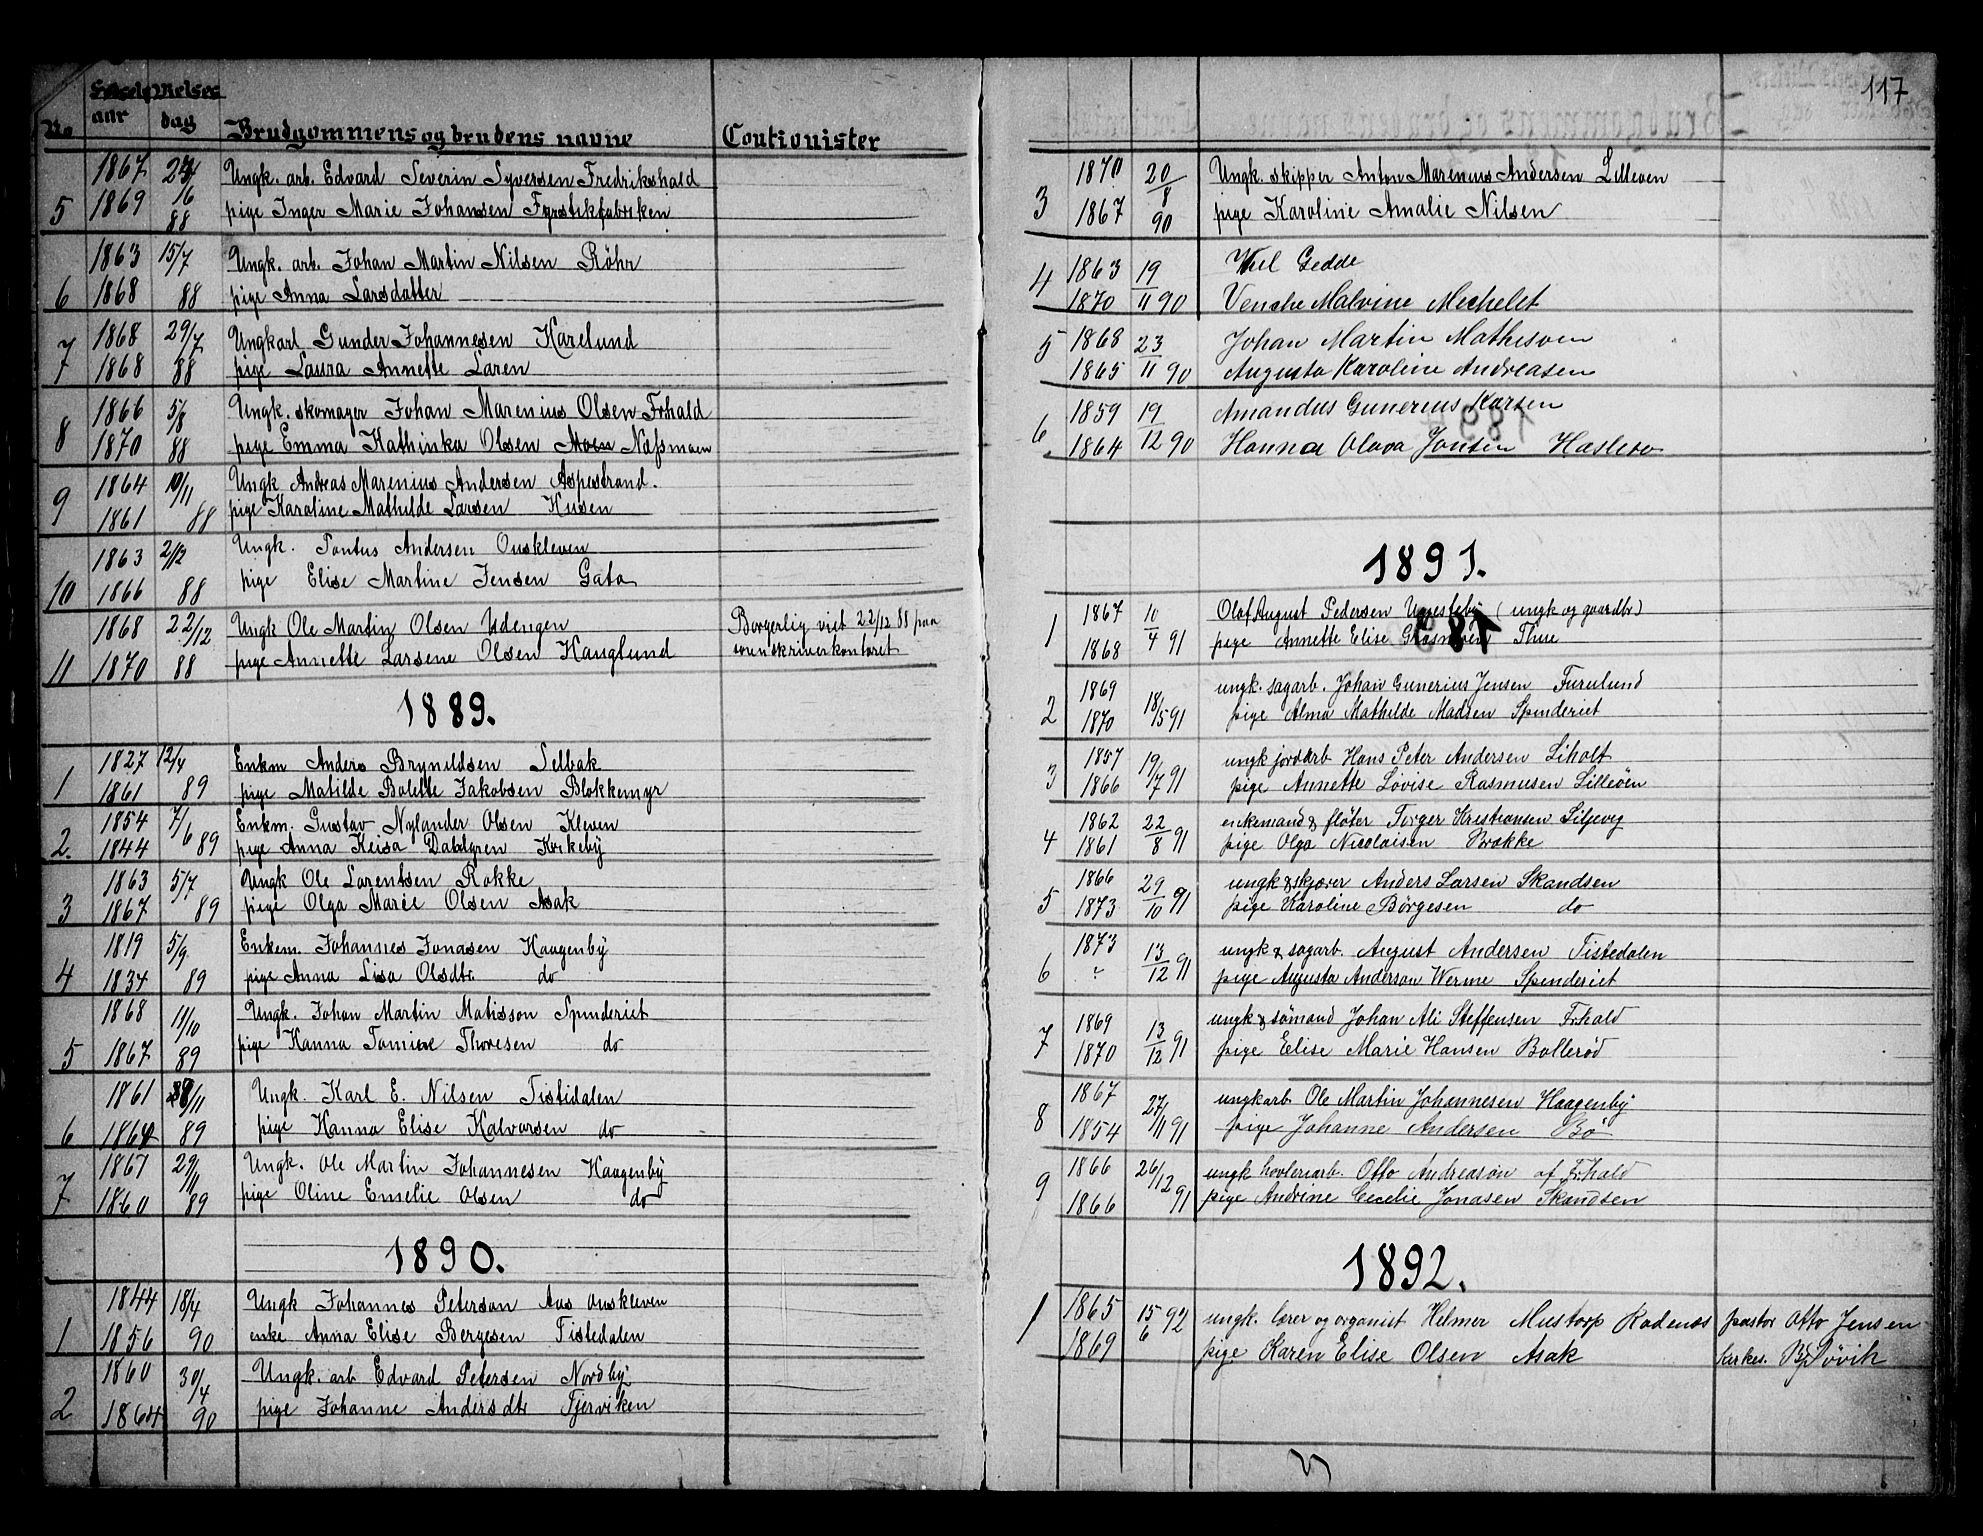 No Fødsels aar Vielses dag Brudgommens og brudens navne Coutionister
1867 24/6 Ungk. arb. Edvard Severin Syversen Fredrikshald
5 1869 88 pige Inger Marie Johansen Fyrstikfabriken
1863 15/7 Ungk. arb. Johan Martin Nilsen Röhr
6 1868 88 pige Anna Larsdatter
1868 29/7 Ungkarl Gunder Johannesen Karelund
7 1868 88 pige Laura Annette Laren
1866 5/8 Ungk. skomager Johan Marenius Olsen Frhald
8 1870 88 pige Emma Kathinka Olsen Moen Næssmoen
1864 10/11 Ungk Andreas Marenius Andersen Aspestrand.
9 1861 88 pige Karoline Mathilde Larsen Husen
1863 2/12 Ungk. Pontus Andersen Ouskleven
10 1866 88 pige Elise Martine Jensen Gata
1868 22/12 Ungk Ole Martin Olsen Udengen Borgerlig viet 22/12 88 paa
11 1870 88 pige Annette Larsene Olsen Hauglund sorenskriverkontoret
1889.
1827 12/4 Enkm Anders Brynildsen Selbak
1 1861 89 pige Matilde Bolette Jakobsen Blokkemyr
1854 7/6 Enkm. Gustav Nylander Olsen Kleven
2. 1844 89 pige Anna Keisa Dahlgren Kirkeby
1863 5/7 Ungk Ole Larentsen Rokke
3 1867 89 pige Olga Marie Olsen Asak
1819 5/9 Enkem. Johannes Jonasen Haagenby
4 1834 89 pige Anna Lisa Olsdtr. do
1868 11/10 Ungk. Johan Martin Matisson Spinderiet
5 1867 89 pige Hanna Tomine Thoresen do
1861 /11 Ungk. Karl E. Nilsen Tistedalen
6 1864 89 pige Hanna Elise Halvorsen do
1867 29/11 Ungk. Ole Martin Johannesen Haagenby
7 1860 89 pige Oline Emelie Olsen do
1890.
1844 18/4 Ungk Johannes Peterson Aas Ouskleven
1 1856 90 enke Anna Elise Bergesen Tistedalen
1860 30/4 Ungk. arb Edvard Petersen Nordby
2 1864 90 pige Johanne Andersdtr Tjerviken
117
1870 20/8 Ungk. skipper Anton Marenius Andersen Lilleven
3 1867 90 pige Karoline Amalie Nilsen
4 1863 19 Gedde
1870 11 90 Venche Malvine Mechelet
5 1868 23 Johan Martin Mathisen
1865 11 90 Augusta Karoline Andreasen
1859 19 Amandus Gunerius Karsen
6 1864 12 90 Hanna Olava Jonsen Haslero
1891.
1867 10 Olaf August Pedersen Unnesteby (ungk og gaardbr)
1 1868 4 91 pige Annette Elise Grasmoen Thue
1869 ungk. sagarb. Johan Gunerius Jensen Furulund
2 1870 18/5 91 pige Alma Mathilde Madsen Spinderiet
1857 19 ungk jordarb Hans Peter Andersen Liholt
3 1866 7 91 pige Annette Lovise Rasmusen Lilleöen
1862 22 enkemand & fløter Torger Kristiansen Liljevy
4 1861 8 91 pige Olga Nicolaisen Brække
1866 29 ungk & skjærer Anders Larsen Skandsen
5 1873 10 91 pige Karoline Børgesen do
1873 13 ungk & sagarb. August Andersen Tistedalen
6 " 12 91 pige Augusta Anderson Werme Spinderiet
1869 13 ungk & sömand Johan Ali Steffensen Frhald
7 1870 12 91 pige Elise Marie Hansen Bollerød
1867 27 ungkarb Ole Martin Johannesen Haagenby
8 1854 11 91 pige Johanne Andersen Bø
1866 26/12 ungk høvleriarb. Otto Andreason af Frhald
9 1866 91 pige Andrine Cecelie Jonasen Skandsen
1892.
1 1865 15 92 ungk. lærer og organist Helmer Mustorp Rodenæs pastor Otto Jensen
1869 6 pige Karen Elise Olsen Asak kirkes. Bjövik